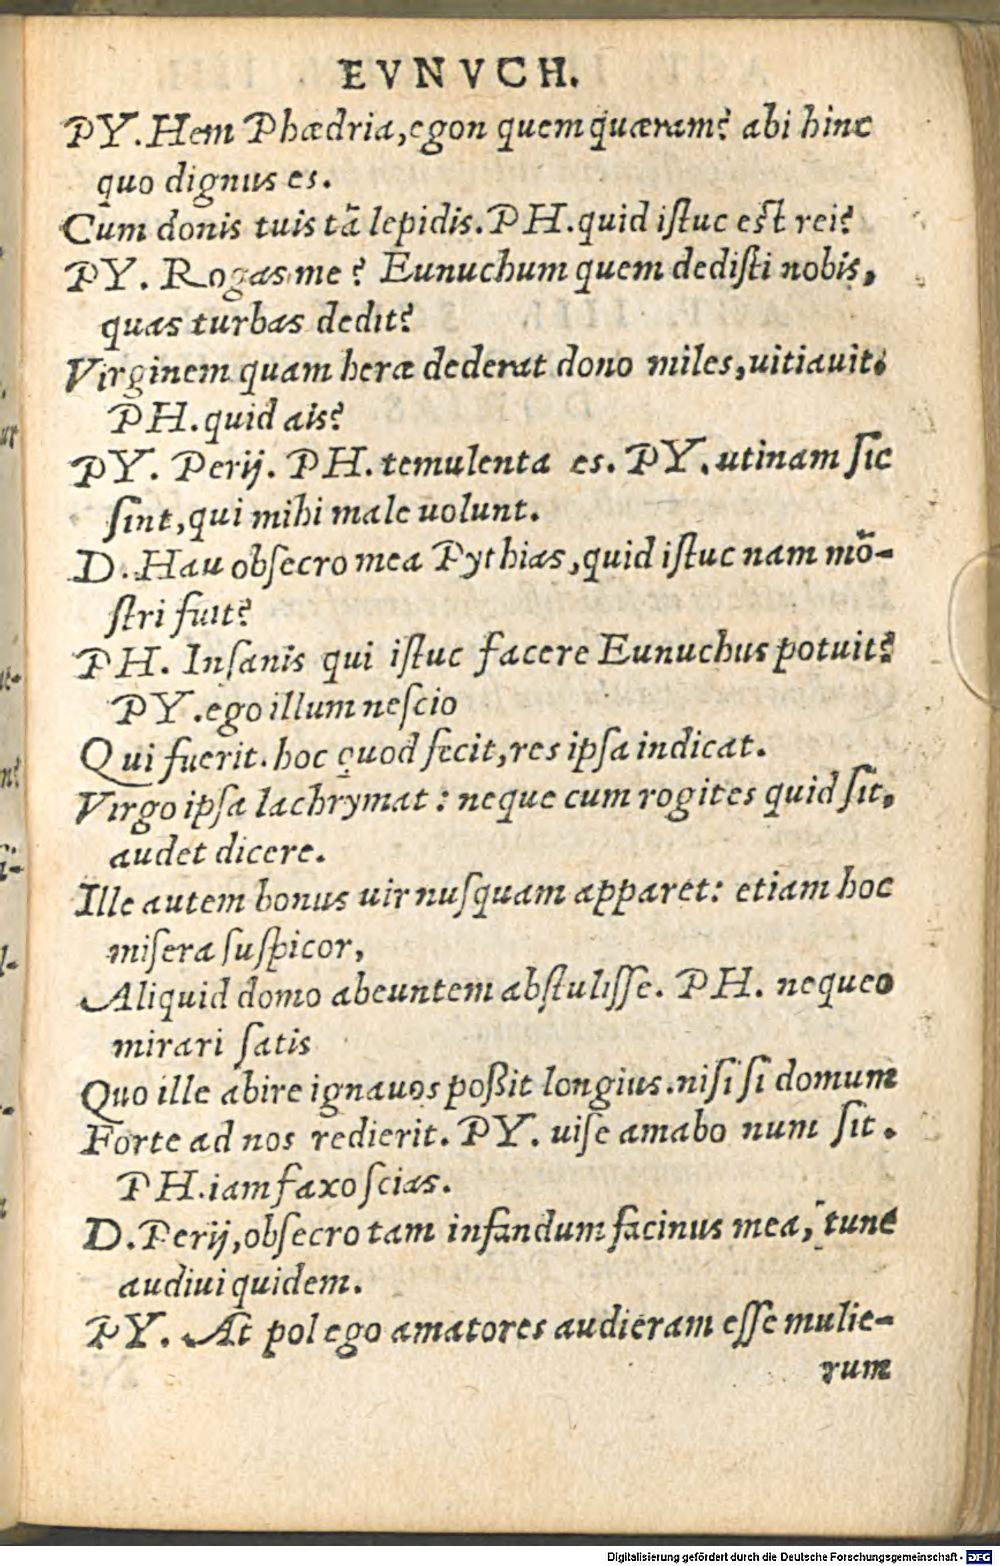 EVNVCH.
PY. Hem Phædria, egon quem quæram? abi hinc
quo dignus es.
Cum donis tuis tā lepidis. PH. quid iſtuc eſt rei?
PY. Rogas me? Eunuchum quem dediſti nobis,
quas turbas dedit?
Virginem quam heræ dederat dono miles, uitiauit.
PH. quid ais?
PY. Perij. PH. temulenta es. PY. utinam ſic
ſint, qui mihi male uolunt.
D. Hau obſecro mea Pythias, quid iſtuc nam mō-
ſtri fuit?
PH. Inſanis qui iſtuc facere Eunuchus potuit?
PY. ego illum neſcio
Qui fuerit. hoc quod fecit, res ipſa indicat.
Virgo ipſa lachrymat: neque cum rogites quid ſit,
audet dicere.
Ille autem bonus uir nuſquam apparet: etiam hoc
miſera ſuſpicor,
Aliquid domo abeuntem abſtuliſſe. PH. nequeo
mirari ſatis
Quo ille abire ignauos poßit longius. niſi ſi domum
Forte ad nos redierit. PY. uiſe amabo num ſit.
PH. iam faxo ſcias.
D. Perij, obſecro tam infandum facinus mea, tune
audiui quidem.
PY. At pol ego amatores audieram eſſe mulie-
rum
Digitalisierung gefördert durch die Deutsche Forschungsgemeinschaft - DFG